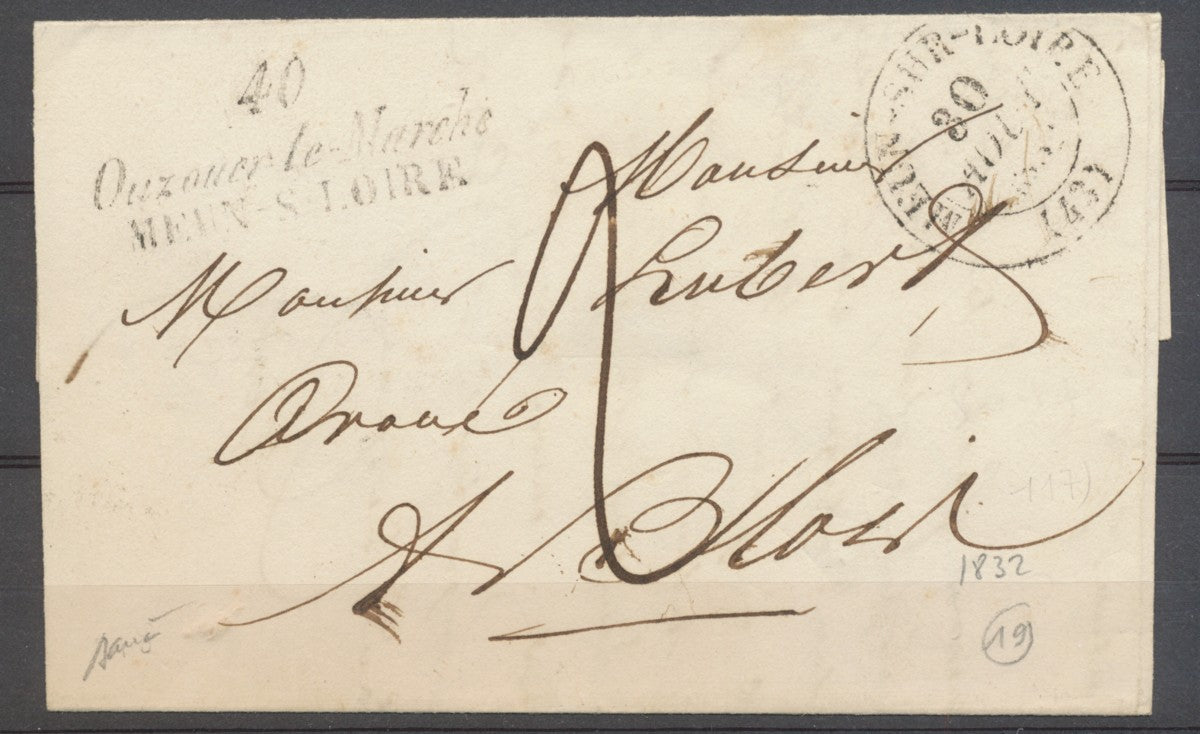 40
Ouzouer-le-Marché
MEUN-S-LOIRE
MEUN-SUR-LOIRE
30
AOUT
(43)
Monsieur
Monsieur Lubert
Avoué
A Blois
117)
1832
19